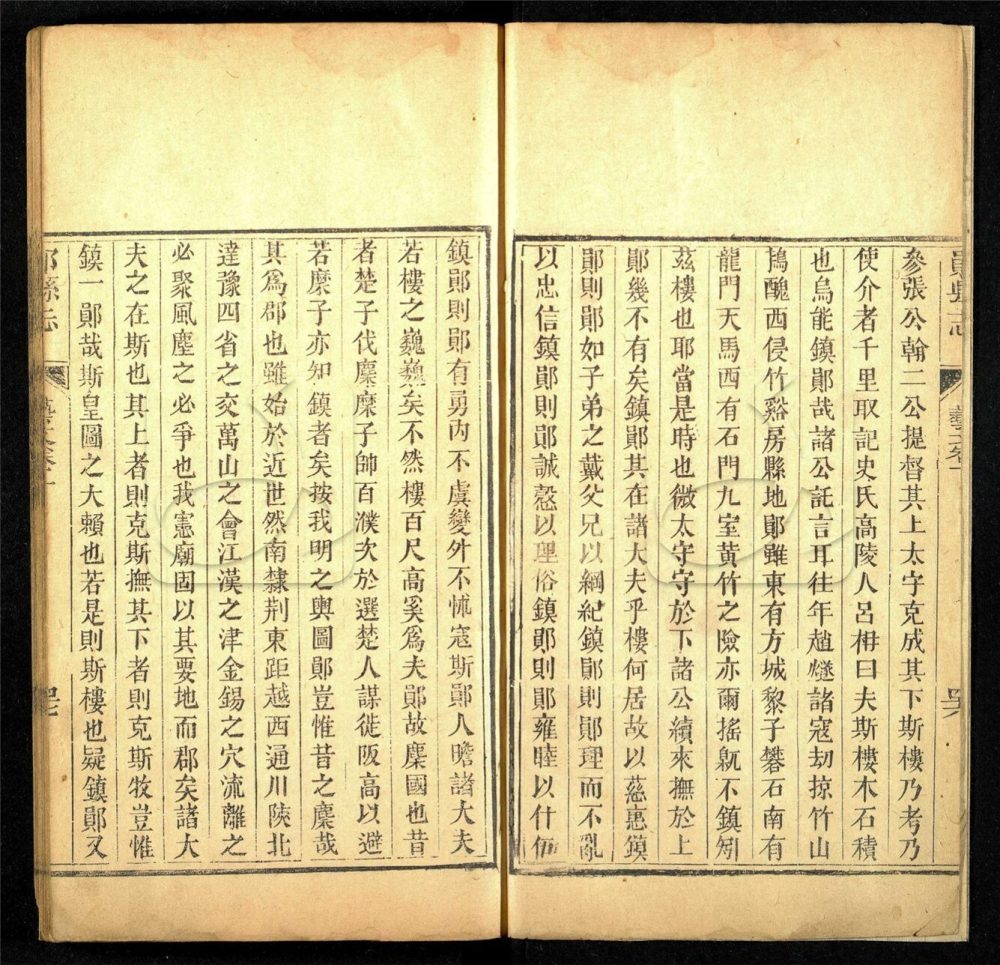 鄖縣志
藝文卷十
參張公翰二公提督其上太守克成其下斯樓乃考乃
使介者千里取記史氏高陵人呂枏曰夫斯樓木石積
也烏能鎮鄖哉諸公託言耳往年趙燧諸寇刧掠竹山
搗醜西侵竹谿房縣地鄖雖東有方城黎子礬石南有
龍門天馬西有石門九室黃竹之險亦爾搖鼽不鎮矧
茲樓也耶當是時也微太守守於下諸公續來撫於上
鄖幾不有矣鎮鄖其在諸大夫乎樓何居故以慈惠鎮
鄖則鄖如子弟之戴父兄以綱紀鎮鄖則鄖理而不亂
以忠信鎮鄖則鄖誠愨以理俗鎮鄖則鄖雍睦以什伍
鎮鄖則鄖有勇內不虞變外不怵寇斯鄖人瞻諸大夫
若樓之巍巍矣不然樓百尺高奚爲夫鄖故麇國也昔
者楚子伐麇麇子帥百濮次於選楚人謀徙阪高以避
若麇子亦知鎮者矣按我明之輿圖鄖豈惟昔之麇哉
其爲郡也雖始於近世然南隸荆東距越西通川陝北
達豫四省之交萬山之會江漢之津金錫之穴流離之
必聚風塵之必爭也我憲廟固以其要地而郡矣諸大
夫之在斯也其上者則克斯撫其下者則克斯牧豈惟
鎮一鄖哉斯皇圖之大賴也若是則斯樓也疑鎮鄖又
縣志